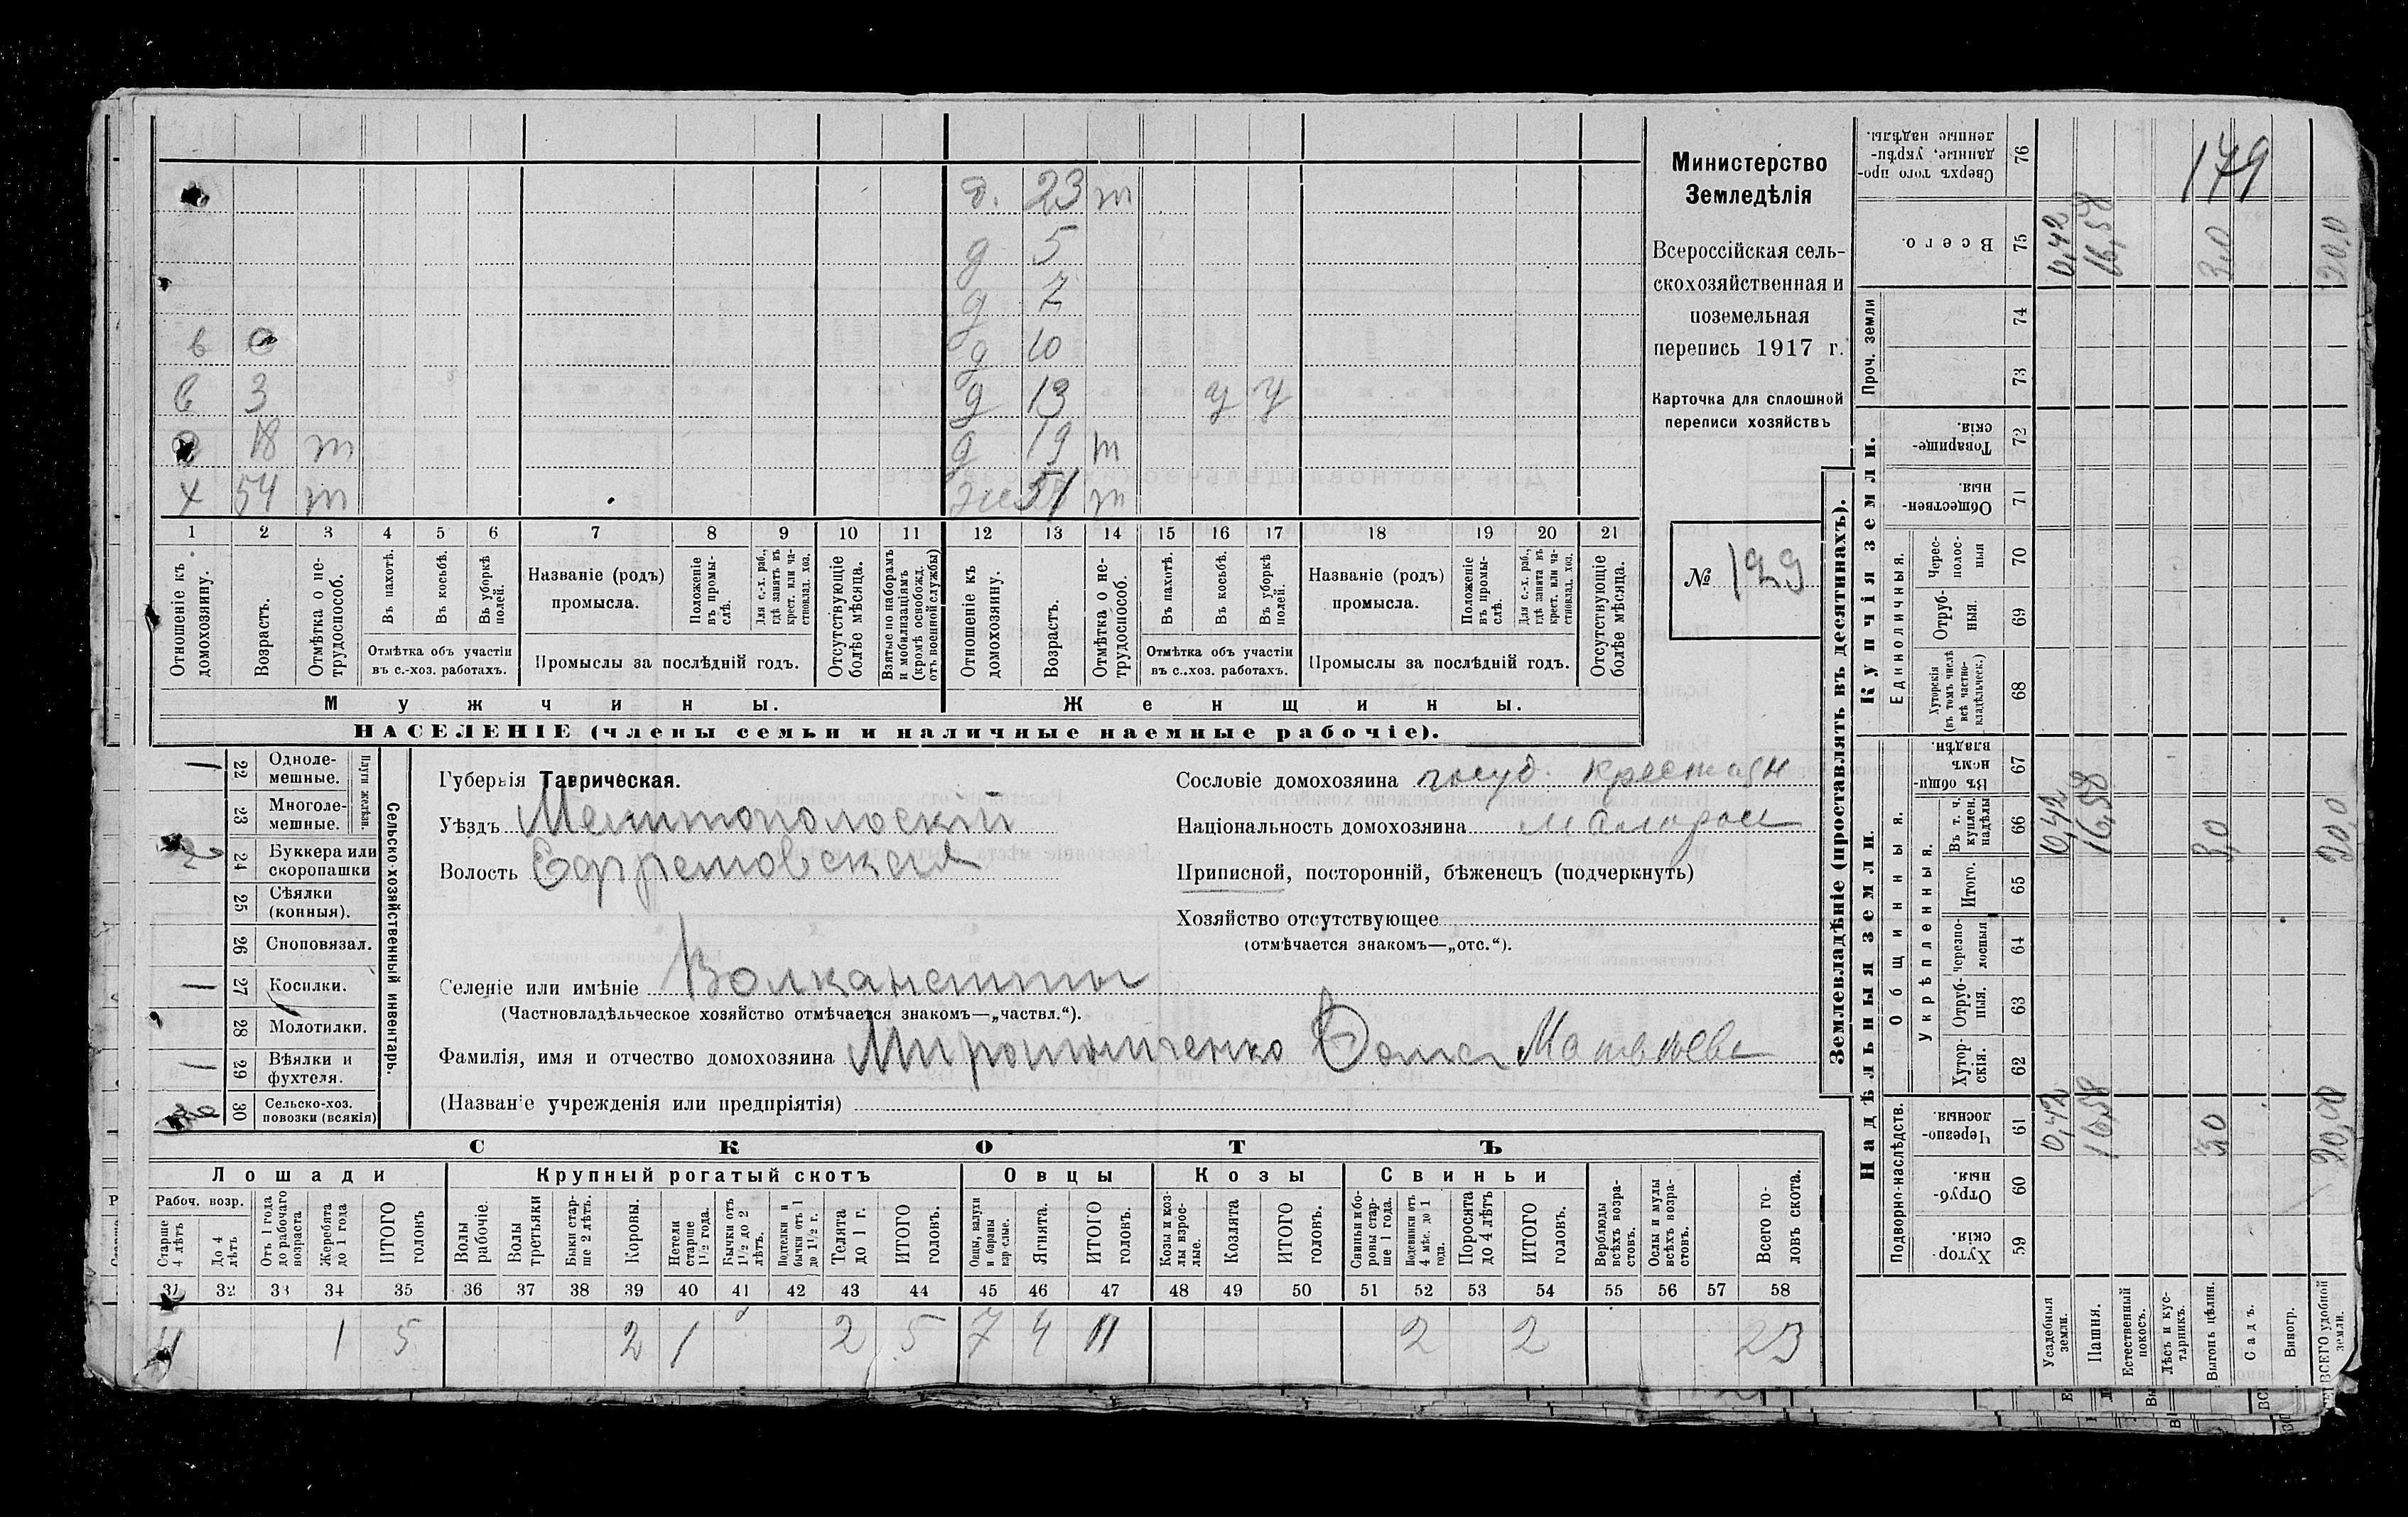 д. 23 т
д 5
д 7
в д 10
в 3 д 13 у у
18 т д 19 т
х 54 т же 51 т
1 2 3 4 5 6 7 8 9 10 11 12 13 14 15 16 17 18 19 20 21
Отношеніе къ домохозяину.
Возрастъ.
Отмѣтка о нетрудоспособ.
Въ пахотѣ.
Въ косьбѣ.
Въ уборкѣ полей.
Отмѣтка объ участіи въ с.-хоз. работахъ.
Названіе (родъ) промысла.
Положеніе въ промыслѣ.
Для с.-х. раб., гдѣ занятъ въ крест. или частновлад. хоз.
Промыслы за послѣдній годъ.
Отсутствующіе болѣе мѣсяца.
Взятые по наборамъ и мобилизаціямъ (кромѣ освобожд. отъ военной службы)
Отношеніе къ домохозяину.
Возрастъ.
Отмѣтка о нетрудоспособ.
Въ пахотѣ.
Въ косьбѣ.
Въ уборкѣ полей.
Отмѣтка объ участіи въ с..хоз. работахъ.
Названіе (родъ) промысла.
Положеніе въ промыслѣ.
Для с.-х. раб., гдѣ занята въ крест. или частновлад. хоз.
Промыслы за послѣдній годъ.
Отсутствующіе болѣе мѣсяца.
Мужчины.
Женщины.
НАСЕЛЕНІЕ (члены семьи и наличные наемные рабочіе).
Министерство
Земледѣлія
Всероссійская сель-
скохозяйственная и
поземельная
перепись 1917 г.
Карточка для сплошной
переписи хозяйствъ
№ 129
Сельско-хозяйственный инвентарь.
Плуги желѣзн.
22 Одноле-
мешные.
23 Многоле-
мешные.
24 Буккера или
скоропашки
25 Сѣялки
(конныя).
26 Сноповязал.
27 Косилки.
28 Молотилки.
29 Вѣялки и
фухтеля.
30 Сельско-хоз.
повозки (всякія)
Губернія Таврическая.
Уѣздъ Мелитопольскій
Волость Ефремовская
Селеніе или имѣніе Волканешты
(Частновладѣльческое хозяйство отмѣчается знакомъ—„частвл.“).
Фамилія, имя и отчество домохозяина Мирошниченко Фома Матвѣевъ
(Названіе учрежденія или предпріятія)
Сословіе домохозяина госуд. крестьян
Національность домохозяина малорос
Приписной, посторонній, бѣженецъ (подчеркнуть)
Хозяйство отсутствующее
(отмѣчается знакомъ—„отс.“).
СКОТЪ
Лошади Крупный рогатый скотъ Овцы Козы Свиньи
Рабоч. возр.
Старше 4 лѣтъ
До 4 лѣтъ
Отъ 1 года до рабочаго возраста
Жеребята до 1 года
ИТОГО головъ
Волы рабочіе.
Волы третьяки
Быки старше 2 лѣтъ.
Коровы.
Нетели старше 1 1/2 года.
Бычки отъ 1 1/2 до 2 лѣтъ.
Подтелки и бычки отъ 1 до 1 1/2 г.
Телята до 1 г.
ИТОГО головъ.
Овцы, валухи и бараны взрослые.
Ягнята.
ИТОГО головъ.
Козы и козлы взрослые.
Козлята
ИТОГО головъ.
Свиньи и боровы старше 1 года.
Подсвинки отъ 4 мѣс. до 1 года.
Поросята до 4 лѣтъ
ИТОГО головъ.
Верблюды всѣхъ возрастовъ.
Ослы и мулы всѣхъ возрастовъ.
Всего головъ скота.
31 32 33 34 35 36 37 38 39 40 41 42 43 44 45 46 47 48 49 50 51 52 53 54 55 56 57 58
4 1 5 2 1 2 5 7 4 11 2 2 23
Землевладѣніе (проставлять въ десятинахъ).
Надѣльныя земли.
Купчія земли.
Проч. земли
Подворно-наслѣдств.
Общинныя.
Укрѣпленныя.
Единоличныя.
Сверхъ того проданные, укрѣпленные надѣлы. 76
179
Всего. 75 0,42 16,58 3,0 20,0
74
73
Товарищескія. 72
Общественныя. 71
Чересполосныя 70
Отрубныя. 69
Хуторскія (въ томъ числѣ всѣ частновладѣльческ.) 68
Въ общинномъ владѣн. 67
Въ т. ч. куплен. надѣлы 66 0,42 16,58 3,0 20,0
Итого. 65
черезполосныя 64
Отрубныя. 63
Хуторскія. 62
Черезполосныя. 61 0,42 16,58 3,0 20,00
Отрубныя. 60
Хуторскія. 59
Усадебныя земли.
Пашня.
Естественный покосъ.
Лѣсъ и кустарникъ.
Выгонъ цѣлин.
Садъ.
Виногр.
ВСЕГО удобной земли.